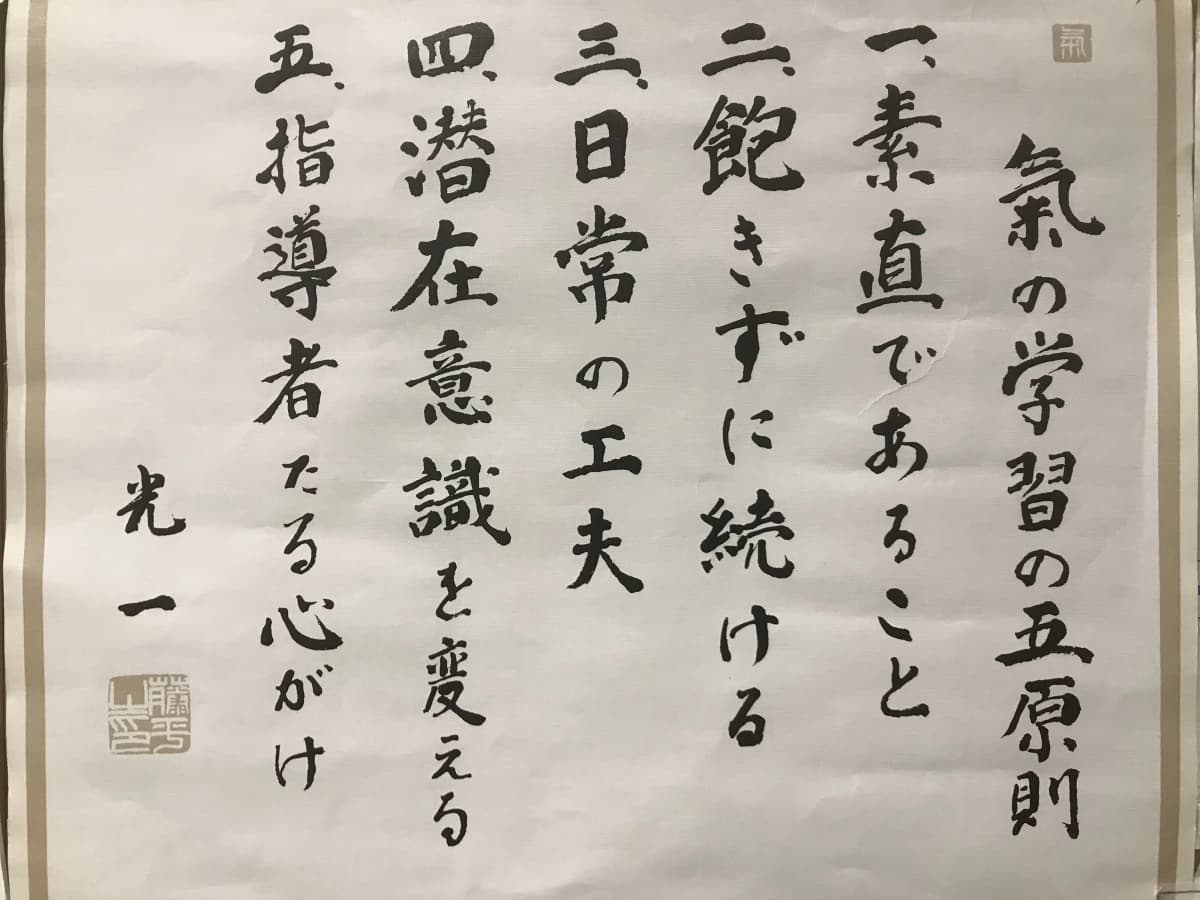 氣
氣の学習の五原則
一、素直であること
二、飽きずに続ける
三、日常の工夫
四、潜在意識を変える
五、指導者たる心がけ
光一